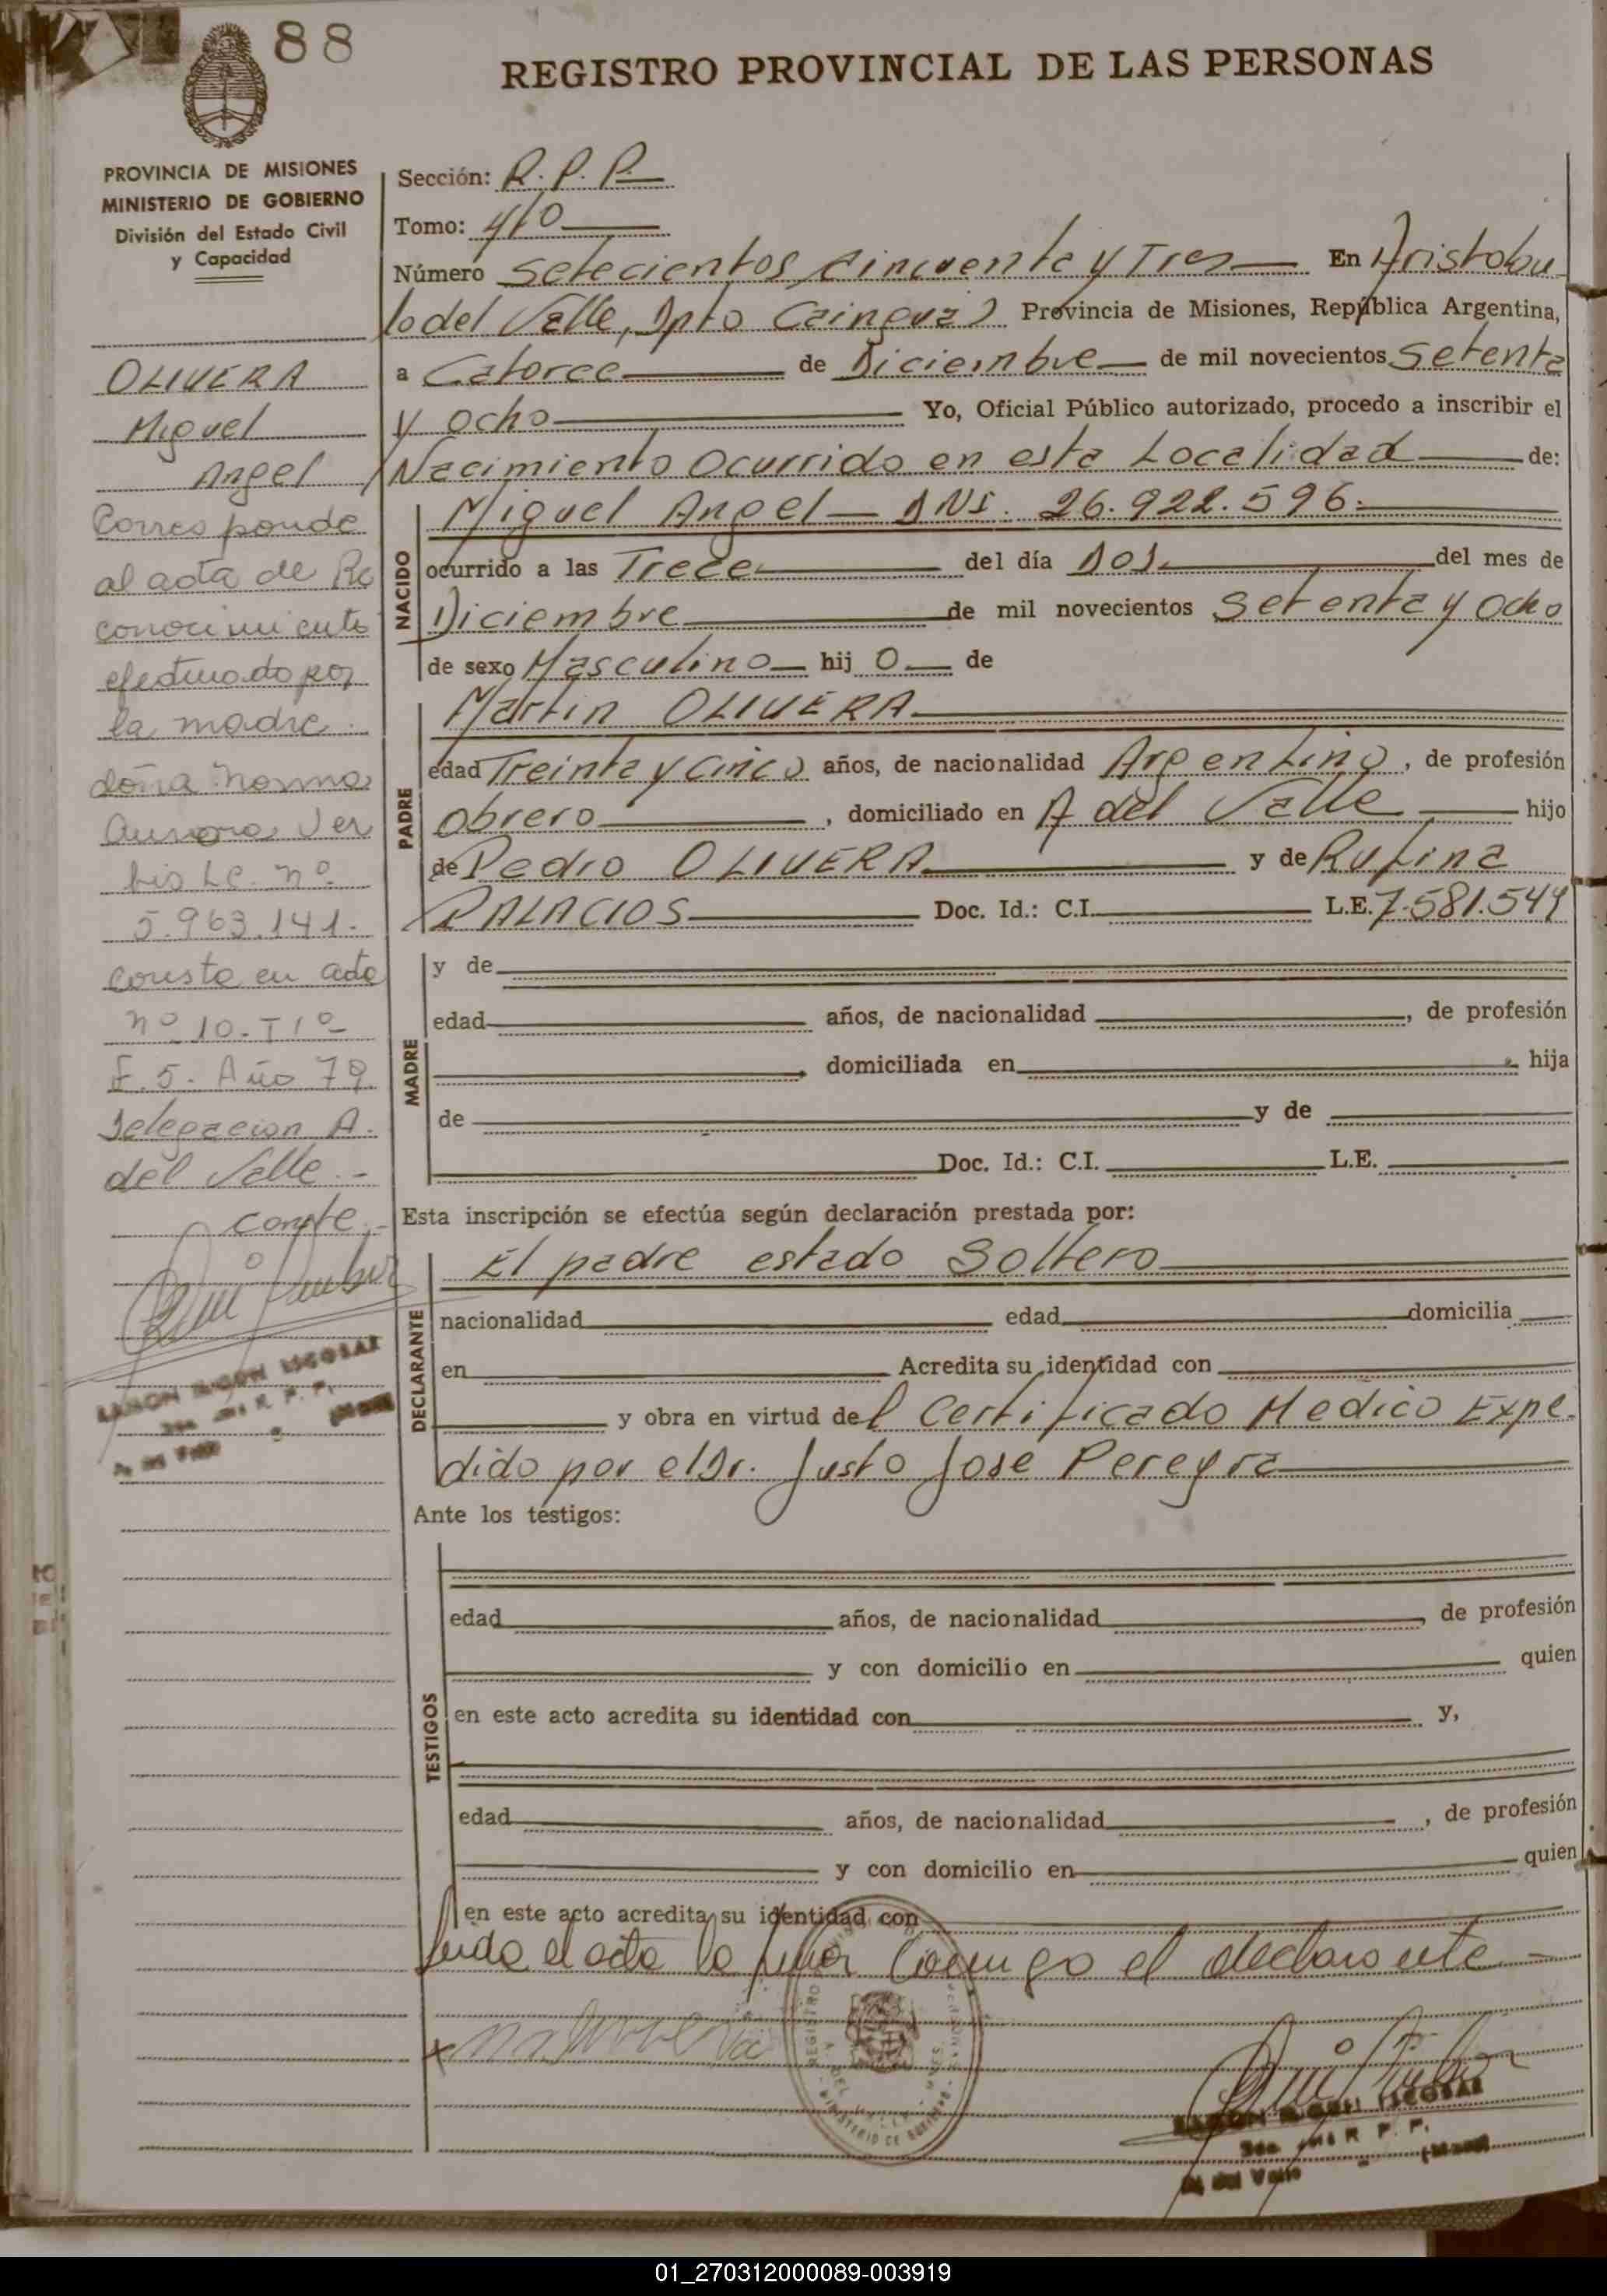 88
REGISTRO PROVINCIAL DE LAS PERSONAS
PROVINCIA DE MISIONES
MINISTERIO DE GOBIERNO
División del Estado Civil
y Capacidad
OLIVERA
Miguel
Angel
Corresponde
al acta de Re
conocimiento
efectuado por
la madre
doña Norma
Aurora Ver
bis Lc. nº
5.963.141.
consta en acta
nº 10 - T 1º
F. 5. Año 79
Delegacion A.
del Valle.-
conste.-
RAMON ESCOBAR
R. P. P.
Sección: R. P. P.
Tomo: 4/0
Número setecientos cincuenta y Tres En Aristobu
lo del Valle, Dpto Cainguas Provincia de Misiones, República Argentina,
a Catorce de Diciembre de mil novecientos setenta
y ocho Yo, Oficial Público autorizado, procedo a inscribir el
Nacimiento ocurrido en esta Localidad de:
NACIDO
Miguel Angel - DNI. 26.922.596.
ocurrido a las Trece del día Dos del mes de
Diciembre de mil novecientos setenta y ocho
de sexo Masculino hij o de
PADRE
Martin OLIVERA
edad Treinta y Cinco años, de nacionalidad Argentino, de profesión
obrero, domiciliado en A del Valle hijo
de Pedro OLIVERA y de Rufina
PALACIOS Doc. Id.: C.I. L.E. 7.581.549
MADRE
y de
edad años, de nacionalidad , de profesión
, domiciliada en , hija
de y de
Doc. Id.: C.I. L.E.
Esta inscripción se efectúa según declaración prestada por:
DECLARANTE
El padre estado Soltero
nacionalidad edad domicilia
en Acredita su identidad con
y obra en virtud del Certificado Medico Expe.
dido por el Dr. Justo Jose Pereyra
Ante los testigos:
TESTIGOS
edad años, de nacionalidad , de profesión
y con domicilio en quien
en este acto acredita su identidad con y,
edad años, de nacionalidad , de profesión
y con domicilio en quien
en este acto acredita su identidad con
Leida el acta la firma conmigo el declarante
x
REGISTRO
MINISTERIO DE GOBIERNO
RAMON ESCOBAR
R. P. P.
01_270312000089-003919